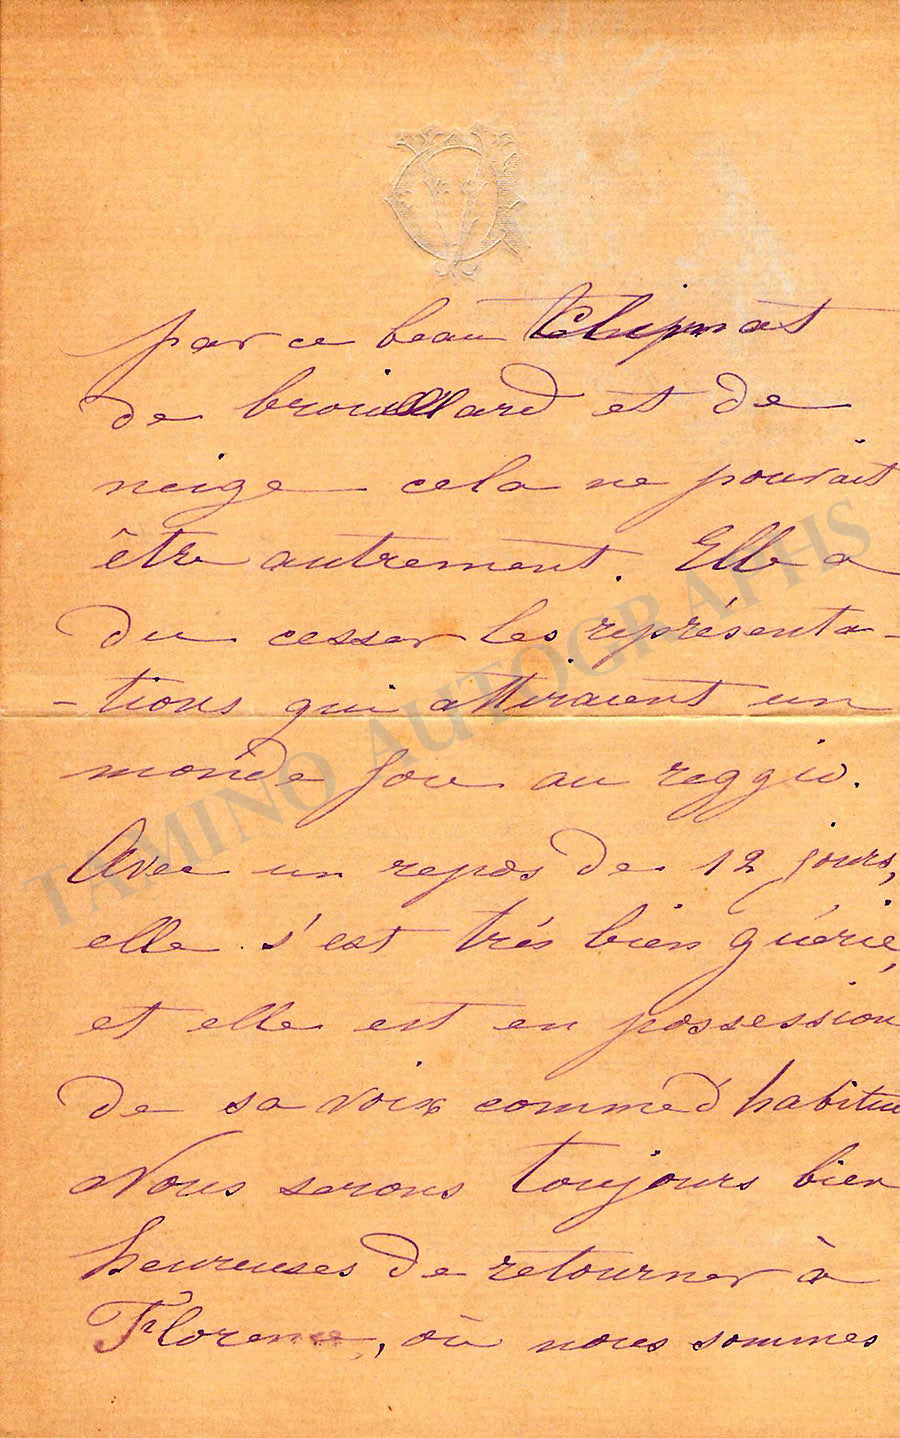 par ce beau climat
de brouillard et de
neige cela ne pouvait
être autrement. Elle a
du cesser les représenta-
-tions qui attiraient un
monde fou au reggio.
Avec un repos de 12 jours,
elle s'est trés bien guérie,
et elle est en possession
de sa voix comme d'habitu
Nous serons toujours bien
heureuses de retourner à
Florence, où nous sommes
TAMINO AUTOGRAPHS